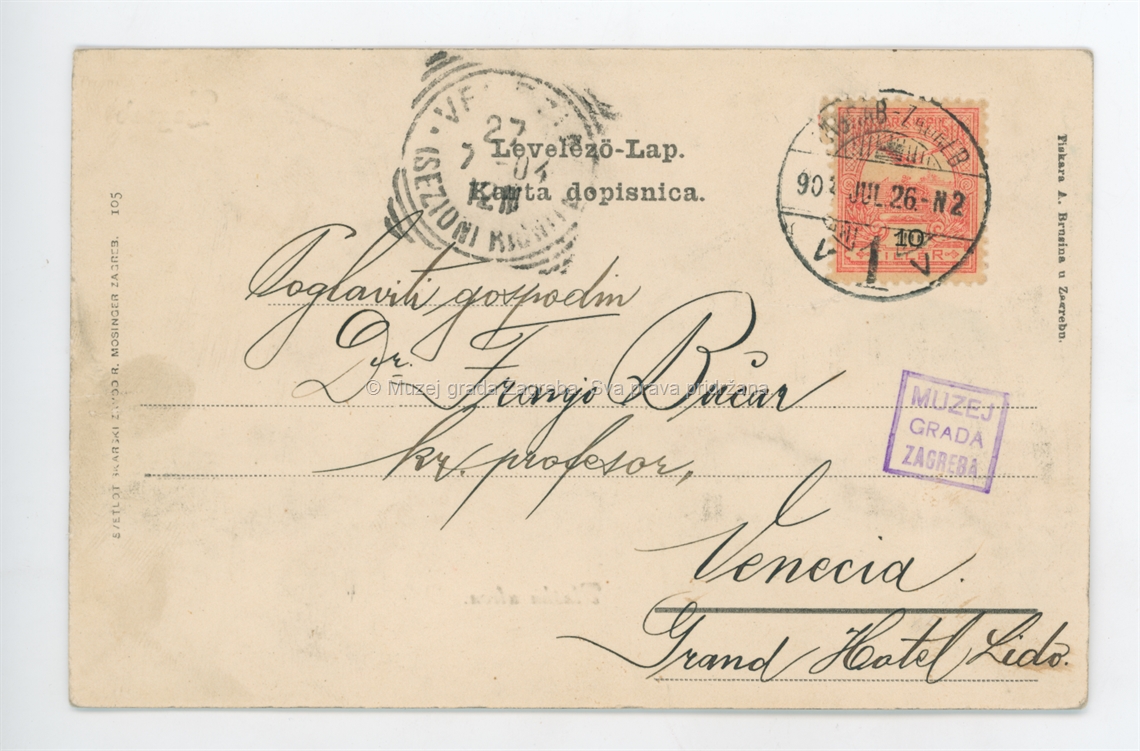 Levelező-Lap.
Karta dopisnica.
27
7 04
(SEZIONI
90 JUL. 26.-N2
1
10
FILLÉR
Poglaviti gospodin
Dr. Franjo Bučar
kr. profesor,
Venecia.
Grand Hotel Lido.
© Muzej grada Zagreba. Sva prava pridržana
MUZEJ
GRADA
ZAGREBA
SVETLOTISKARSKI ZAVOD R. MOSINGER ZAGREB. 105
Tiskara A. Brusina u Zagrebu.